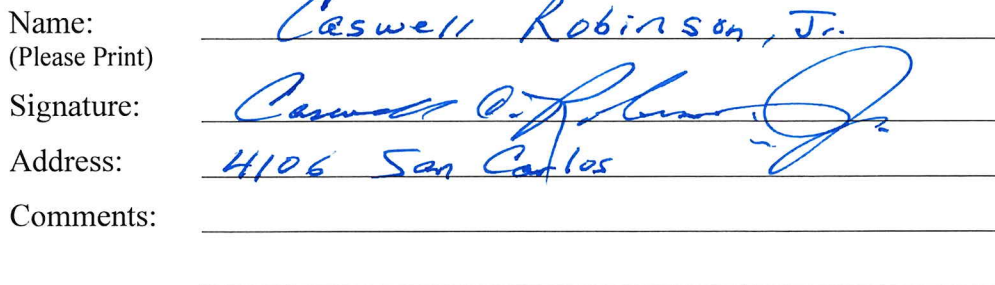 Name: Caswell Robinson, Jr.
(Please Print)
Signature: Caswell C. Robinson, Jr.
Address: 4106 San Carlos
Comments: